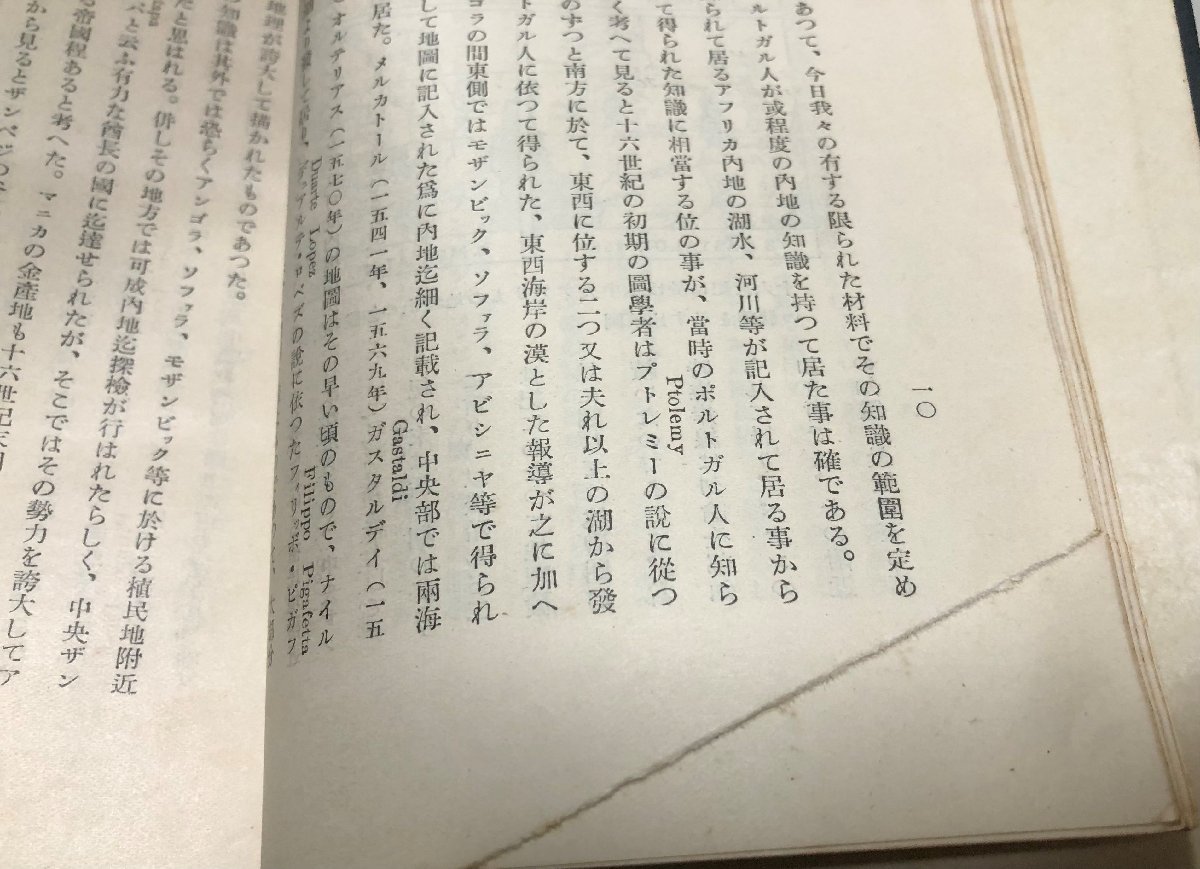 一〇
あつて、今日我々の有する限られた材料でその知識の範圍を定め
ルトガル人が或程度の內地の知識を持つて居た事は確である。
られて居るアフリカ內地の湖水、河川等が記入されて居る事から
て得られた知識に相當する位の事が、當時のポルトガル人に知ら
Ptolemy
く考へて見ると十六世紀の初期の圖學者はプトレミーの說に從つ
のずつと南方に於て、東西に位する二つ又は夫れ以上の湖から發
トガル人に依つて得られた、東西海岸の漠とした報導が之に加へ
ゴラの間東側ではモザンビック、ソファラ、アビシニヤ等で得られ
して地圖に記入された爲に內地迄細く記載され、中央部では兩海
Gastaldi
居た。メルカトール(一五四一年、一五六九年)ガスタルデイ(一五
オルテリアス(一五七〇年)の地圖はその早い頃のもので、ナイル
Duarte Lopez Filippo Pigafetta
ロペズの說に依つたフィリッポ・ピガフ
地理が誇大して描かれたものであつた。
の知識は其外では恐らくアンゴラ、ソファラ、モザンビック等に於ける植民地附近
だと思はれる。併しその地方では可成內地迄探檢が行はれたらしく、中央ザン
パと云ふ有力な酋長の國に迄達せられたが、そこではその勢力を誇大してア
る帝國程あると考へた。マニカの金產地も十六世紀
から見るとザンベジの